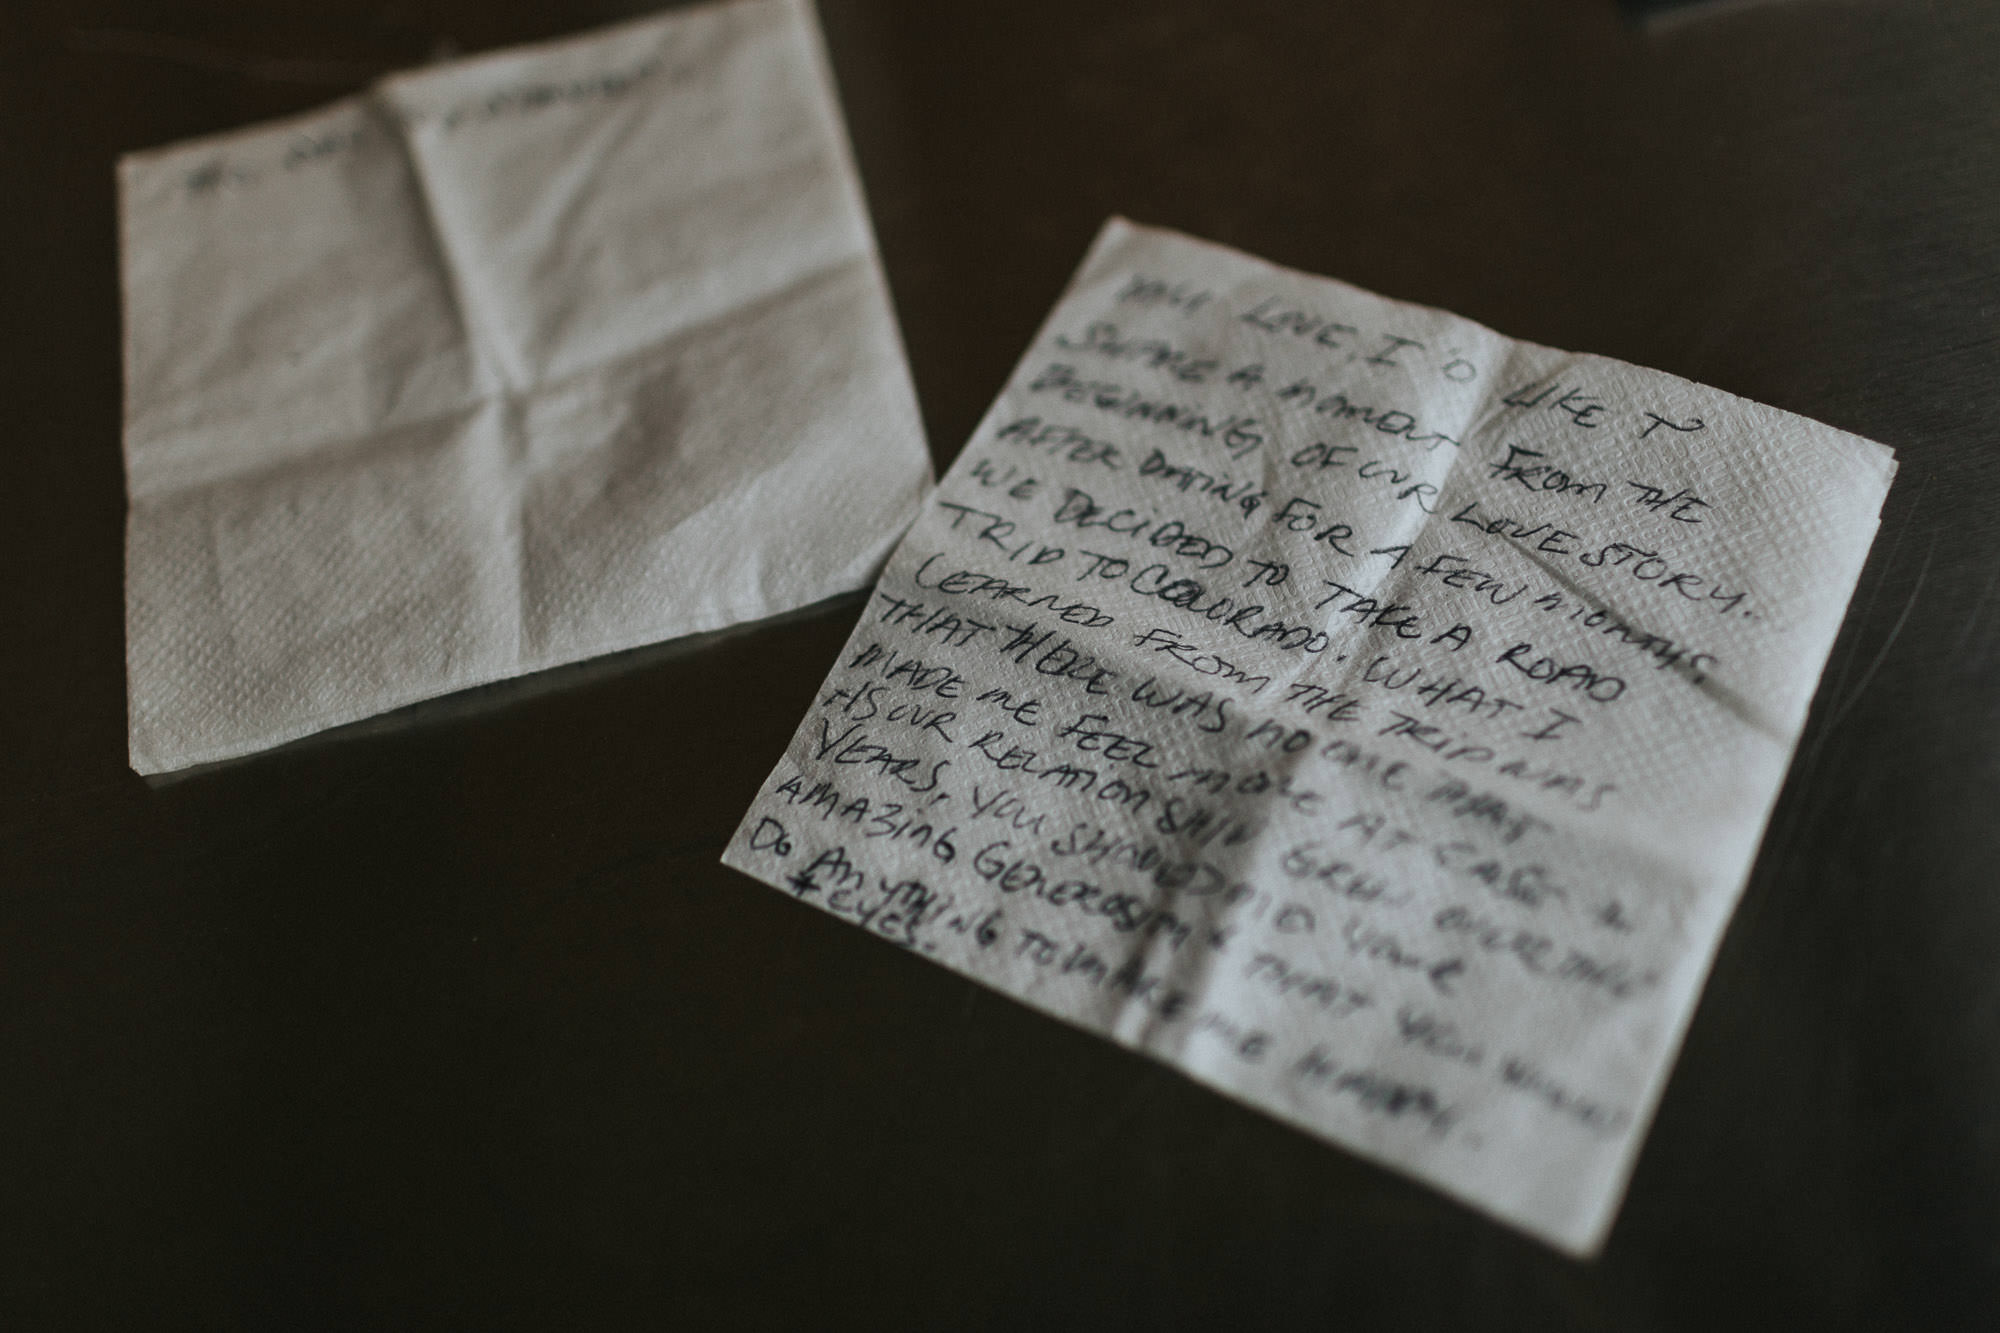 LOVE, I'D LIKE TO
SHARE A MOMENT FROM THE
BEGINNING OF OUR LOVE STORY.
AFTER DATING FOR A FEW MONTHS,
WE DECIDED TO TAKE A ROAD
TRIP TO COLORADO. WHAT I
LEARNED FROM THE TRIP WAS
THAT THERE WAS NO ONE THAT
MADE ME FEEL MORE AT EASE &
AS OUR RELATIONSHIP GREW OVER THE
YEARS, YOU SHOWED ME YOUR
AMAZING GENEROSITY & THAT YOU WOULD
DO ANYTHING TO MAKE ME HAPPY.